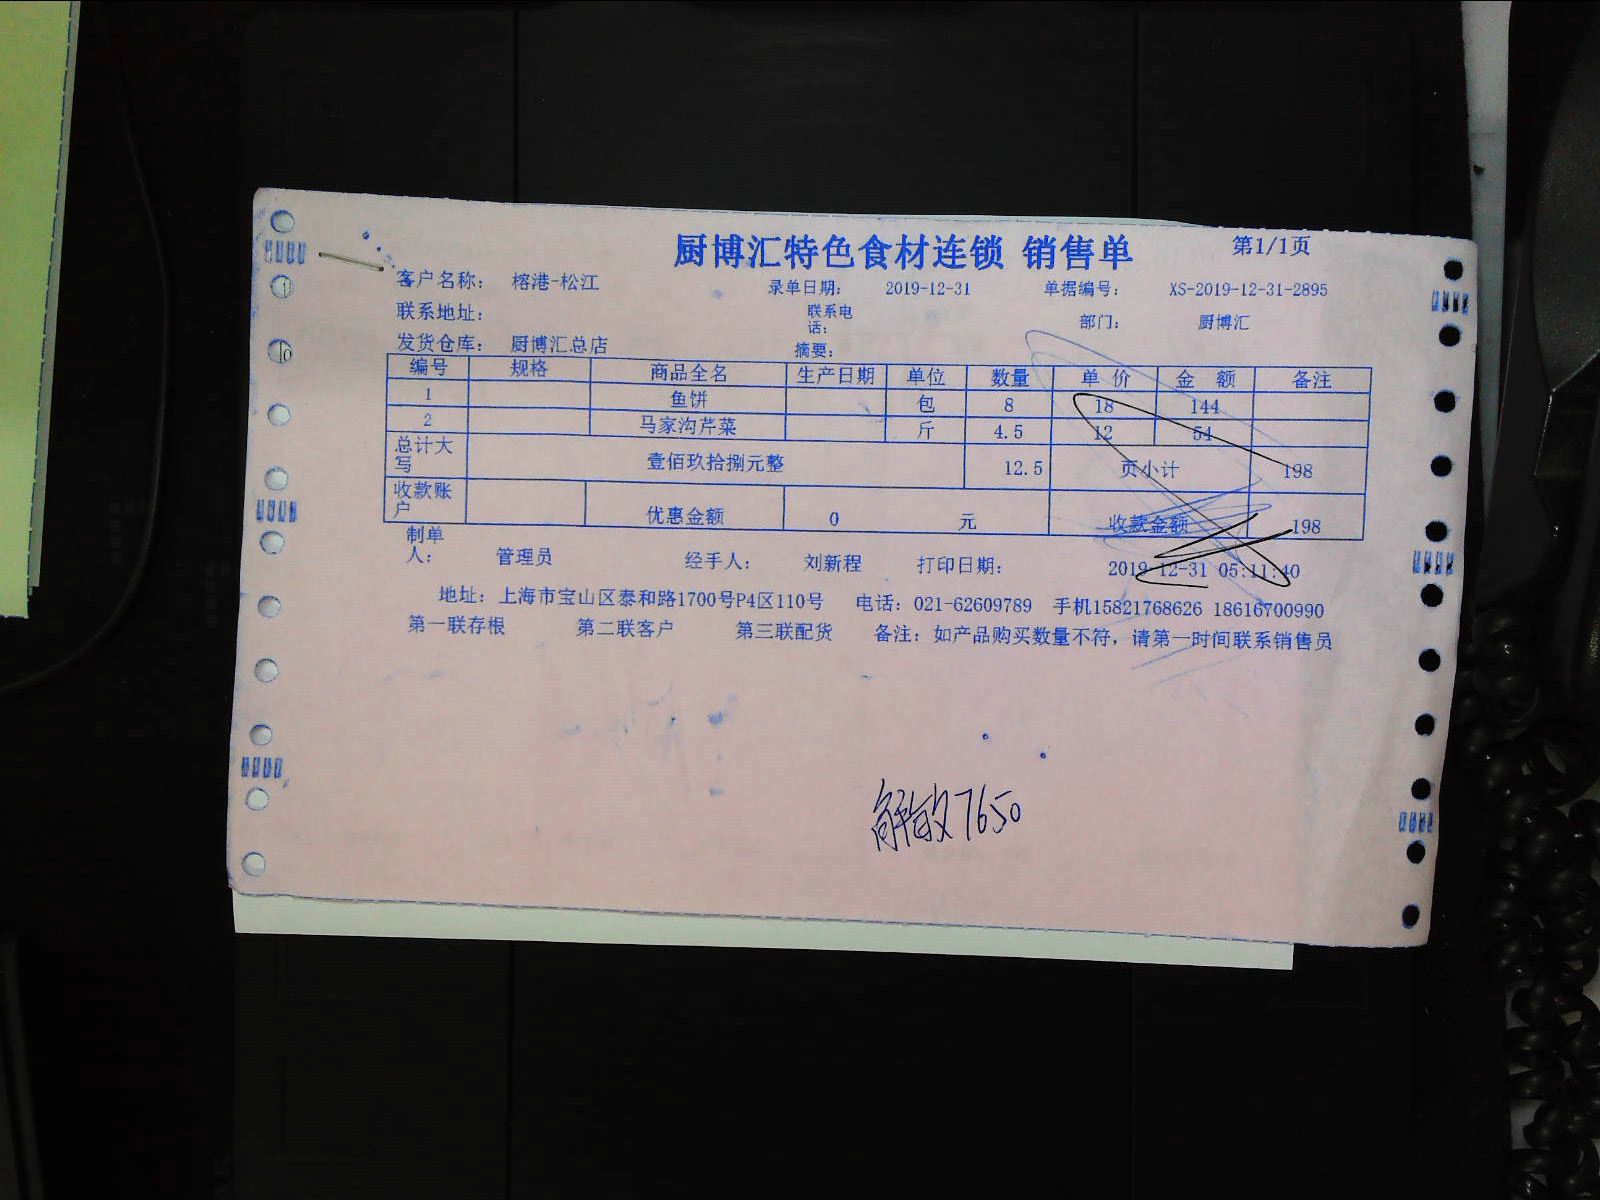 厨博汇特色食材连锁 销售单 第1/1页
客户名称： 榕港-松江 录单日期： 2019-12-31 单据编号： XS-2019-12-31-2895
联系地址： 联系电话： 部门： 厨博汇
发货仓库： 厨博汇总店 摘要：
编号 规格 商品全名 生产日期 单位 数量 单 价 金 额 备注
1 鱼饼 包 8 18 144
2 马家沟芹菜 斤 4.5 12 54
总计大写 壹佰玖拾捌元整 12.5 页小计 198
收款账户 优惠金额 0 元 收款金额 198
制单人： 管理员 经手人： 刘新程 打印日期： 2019-12-31 05:11:40
地址：上海市宝山区泰和路1700号P4区110号 电话：021-62609789 手机15821768626 18616700990
第一联存根 第二联客户 第三联配货 备注：如产品购买数量不符，请第一时间联系销售员
7650